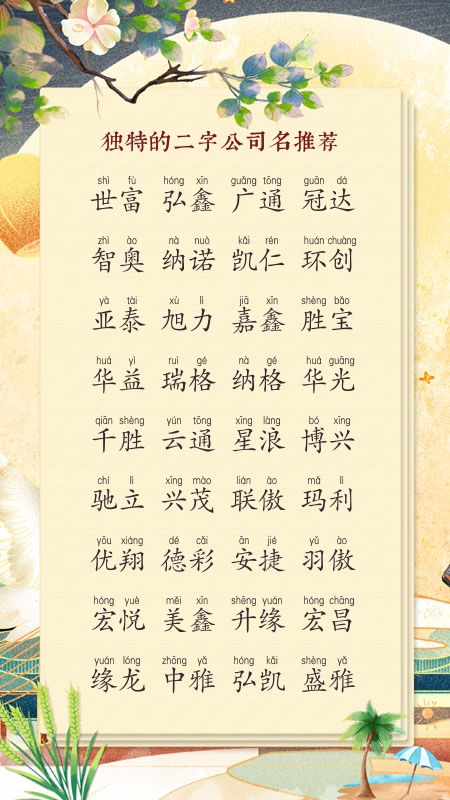 独特的二字公司名推荐
shì fù hóng xīn guǎng tōng guān dá
世富 弘鑫 广通 冠达
zhì ào nà nuò kǎi rén huán chuàng
智奥 纳诺 凯仁 环创
yà tài xù lì jiā xīn shèng bǎo
亚泰 旭力 嘉鑫 胜宝
huá yì ruì gé nà gé huá guāng
华益 瑞格 纳格 华光
qiān shèng yún tōng xīng làng bó xīng
千胜 云通 星浪 博兴
chí lì xīng mào lián ào mǎ lì
驰立 兴茂 联傲 玛利
yōu xiáng dé cǎi ān jié yǔ ào
优翔 德彩 安捷 羽傲
hóng yuè měi xīn shēng yuán hóng chāng
宏悦 美鑫 升缘 宏昌
yuán lóng zhōng yǎ hóng kǎi shèng yǎ
缘龙 中雅 弘凯 盛雅